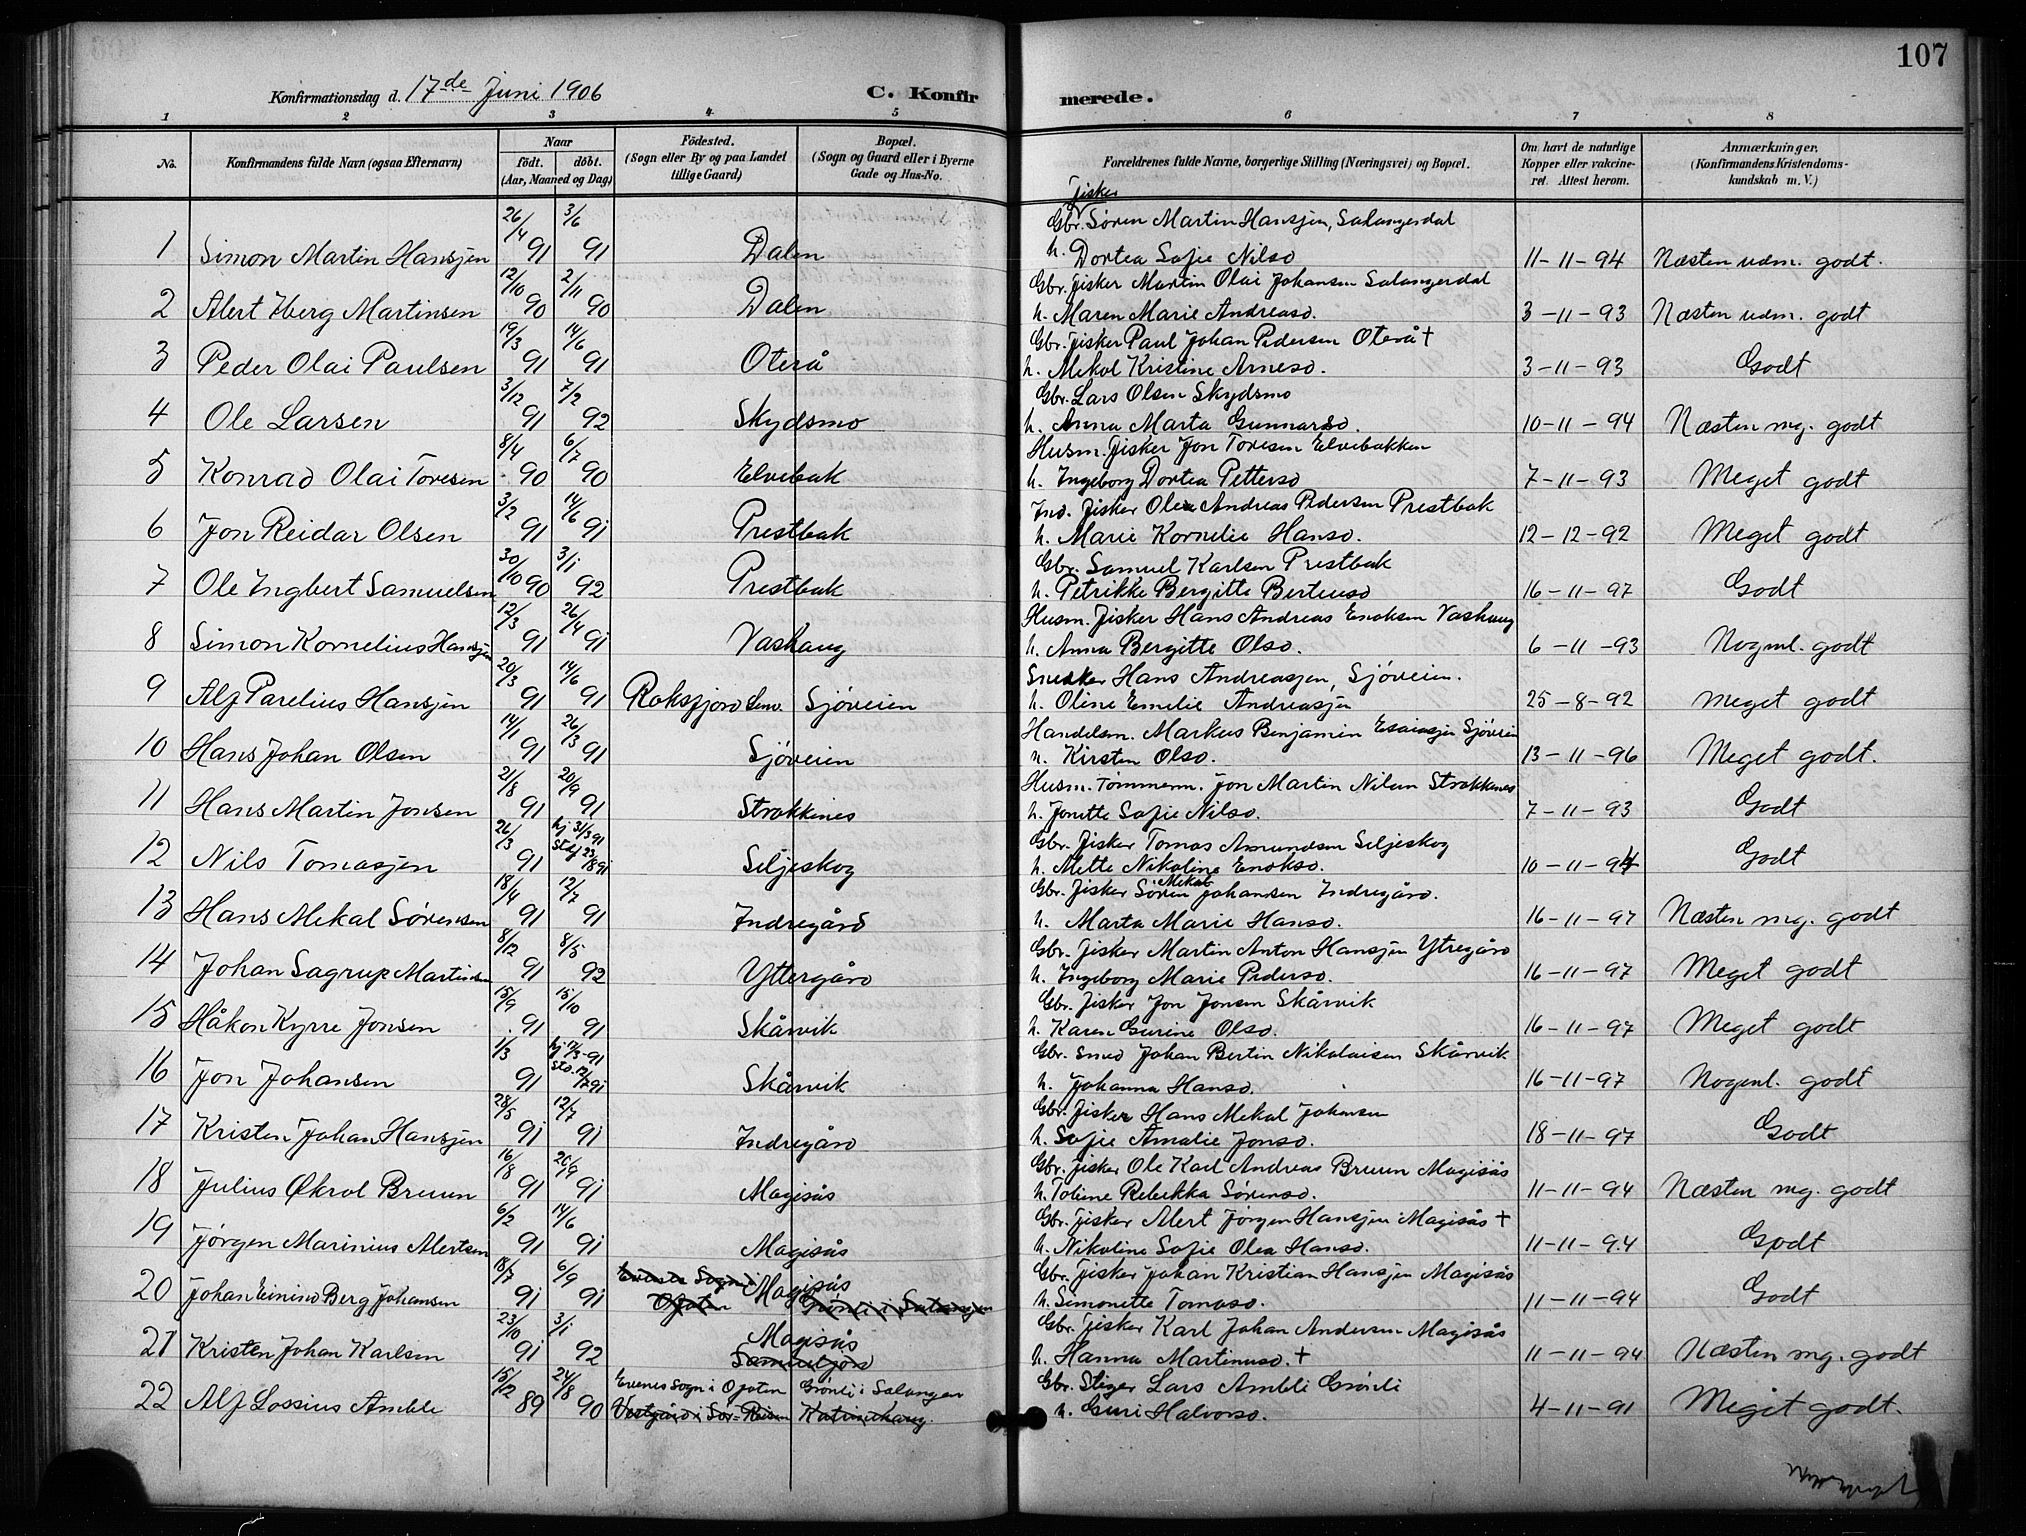 107
Konfirmationsdag d. 17de Juni 1906 C. Konfirmerede.
1 2 3 4 5 6 7 8
No. Konfirmandens fulde Navn (ogsaa Efternavn) Naar födt. döbt. (Aar, Maaned og Dag) Födested. (Sogn eller By og paa Landet tillige Gaard) Bopæl. (Sogn og Gaard eller i Byerne Gade og Hus-No. Forældrenes fulde Navne, borgerlige Stilling (Næringsvei) og Bopæl. Om havt de naturlige Kopper eller vakcineret. Attest herom. Anmærkninger. (Konfirmandens Kristendomskundskab m. V.)
fisker
26/4 3/6 Gbr. Sören Martin Hansjen, Salangerdal
1 Simon Martin Hansjen 91 91 Dalen h. Dortea Sofie Nilsd 11-11-94 Næsten udm. godt.
12/10 2/11 Gbr. fisker Martin Olai Johansen Salangerdal
2 Alert Iberg Martinsen 90 90 Dalen h. Maren Marie Andreasd. 3-11-93 Næsten udm. godt
19/3 14/6 Gbr. fisker Paul Johan Pedersen Oterå †
3 Peder Olai Paulsen 91 91 Oterå h. Mekal Kristine Arnesd. 3-11-93 Godt
3/12 7/2 Gbr. Lars Olsen Skydsmo
4 Ole Larsen 91 92 Skydsmo h. Anna Marta Gunnarsd. 10-11-94 Næsten mg. godt
8/4 6/7 Husm. fisker Jon Toresen Elvebakken
5 Konrad Olai Toresen 90 90 Elvebak h. Ingeborg Dortea Pettersd 7-11-93 Meget godt
3/2 14/6 Ind. fisker Ole Andreas Pedersen Prestbak
6 Jon Reidar Olsen 91 91 Prestbak h. Marie Kornelie Hansd. 12-12-92 Meget godt
30/10 3/1 Gbr. Samuel Karlsen Prestbak
7 Ole Ingbert Samuelsen 90 92 Prestbak h. Petrikke Bergitte Bertensd 16-11-97 Godt
12/3 26/4 Husm. fisker Hans Andreas Enoksen Vashaug
8 Simon Kornelius Hansjen 91 91 Vashaug h. Anna Bergitte Olsd. 6-11-93 Nogml. godt
20/3 14/6 Snedker Hans Andreasjen, Sjöveien.
9 Alf Parelius Hansjen 91 91 Roksfjord Lenv. Sjöveien h. Oline Emelie Andreasjen 25-8-92 Meget godt
14/1 26/3 Handelsm. Markus Benjamin Esaiasjen Sjöveien
10 Hans Johan Olsen 91 91 Sjöveien h. Kirsten Olsd. 13-11-96 Meget godt.
21/8 20/9 Husm. Tömmerm. Jon Martin Nilsen Strokkenes
11 Hans Martin Jonsen 91 91 Strokkenes h. Jonette Sofie Nilsd. 7-11-93 Godt
26/3 hj 31/3 91 Gbr. fisker Tomas Amundsen Seljeskog
12 Nils Tomasjen 91 Seljeskog h. Mette Nikoline Enoksd. 10-11-94 Godt
18/4 12/7 Gbr. fisker Sören Mekal Johansen Indregård.
13 Hans Mekal Sörensen 91 91 Indregård h. Marta Marie Hansd. 16-11-97 Næsten mg. godt
8/12 8/5 Gbr. fisker Martin Anton Hansjen Ytregård
14 Johan Sagrup Martinsen 91 92 Yttergård h. Ingeborg Marie Pedersd. 16-11-97 Meget godt
15/9 15/10 Gbr. fisker Jon Jonsen Skårvik
15 Håkon Kyrre Jonsen 91 91 Skårvik h. Karen Gurine Olsd. 16-11-97 Meget godt
1/3 Gbr. smed Johan Bertin Nikolaisen Skårvik
16 Jon Johansen 91 Skårvik h. Johanna Hansd. 16-11-97 Nogenl. godt
28/5 12/7 Gbr. fisker Hans Mekal Johansen
17 Kristen Johan Hansjen 91 91 Indregård h. Sofie Amalie Jonsd. 18-11-97 Godt
16/8 20/9 Gbr. fisker Ole Karl Andreas Bruun Magisås
18 Julius Økrol Bruun 91 91 Magisås h. Toline Rebekka Sörensd. 11-11-94 Næsten mg. godt
6/2 14/6 Gbr. fisker Alert Jörgen Hansjen Magisås †
19 Jörgen Marinius Alertsen 91 91 Magisås h. Nikoline Sofie Olea Hansd. 11-11-94 Godt
18/7 6/9 Evenes Sogn i Ofoten Magisås Grönli i Salangen Gbr. fisker Johan Kristian Hansjen Magisås
20 Johan Einind Berg Johansen 91 91 h. Simonette Tomasd. 11-11-94 Godt
23/10 3/1 Magisås Gbr. fisker Karl Johan Andersen Magisås
21 Kristen Johan Karlsen 91 92 h. Hanna Martinusd. † 11-11-94 Næsten mg. godt
15/12 24/8 Evenes Sogn i Ofoten Grönli i Salangen Gbr. Lars Amble Grönli
22 Alf Lossius Amble 89 90 h. Guri Halvorsd. 4-11-91 Meget godt.